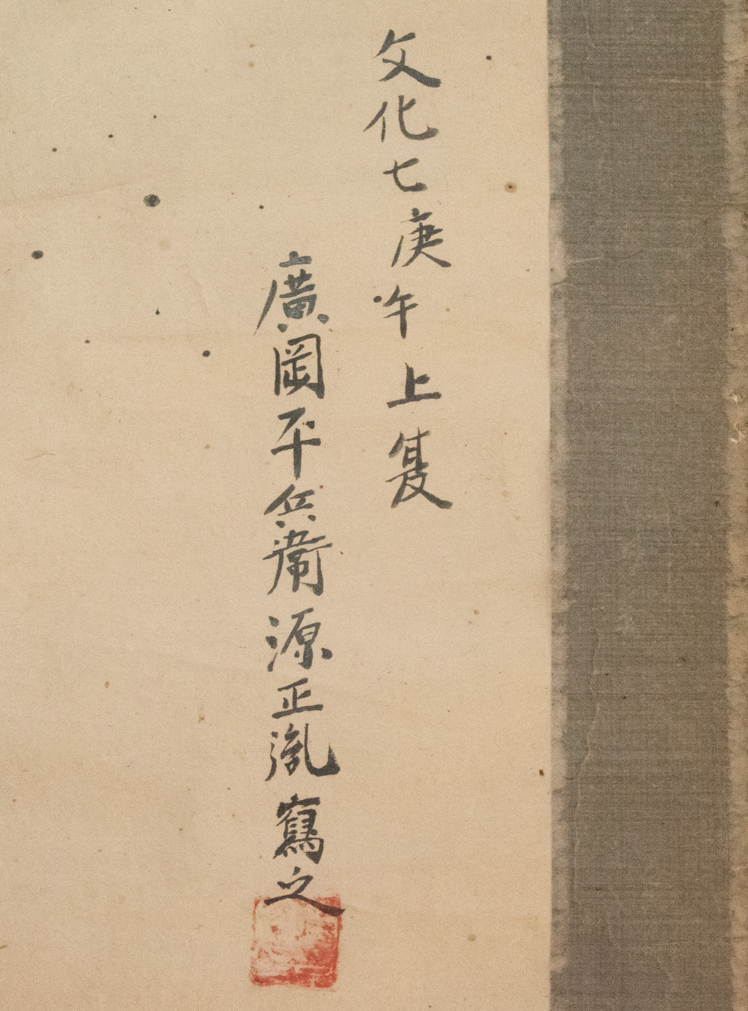 文化七庚午上夏
廣岡平兵衛源正胤寫之